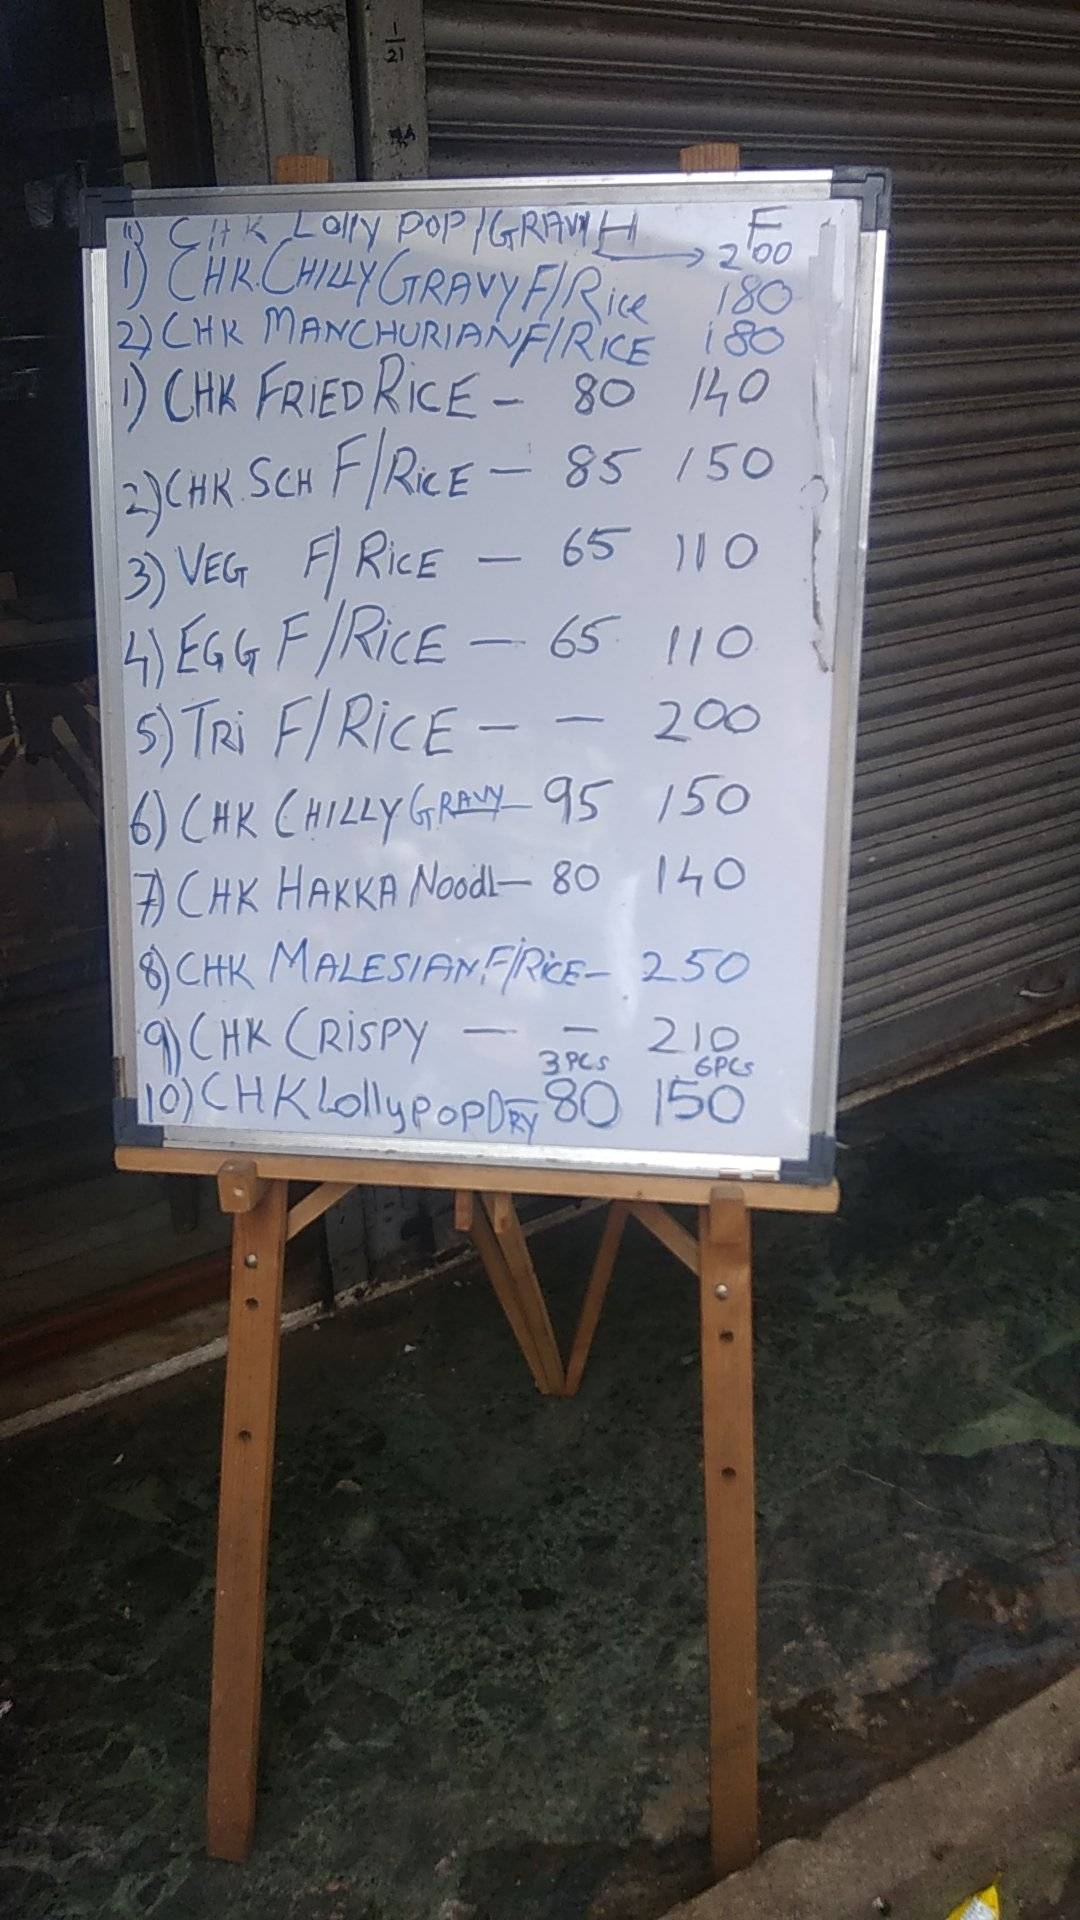 1/21
11) CHK Lolly POP/GRAVY H F
→ 200
1) CHK.CHILLY GRAVY F/Rice 180
2) CHK MANCHURIAN F/RICE 180
1) CHK FRIED RICE - 80 140
2) CHK. SCH F/RICE - 85 150
3) VEG F/RICE - 65 110
4) EGG F/RICE - 65 110
5) TRI F/RICE - - 200
6) CHK CHILLY GRAVY - 95 150
7) CHK HAKKA NoodL - 80 140
8) CHK MALESIAN F/RICE - 250
9) CHK CRISPY - - 210
3 PCS 6PCS
10) CHK Lollypop DRY - 80 150